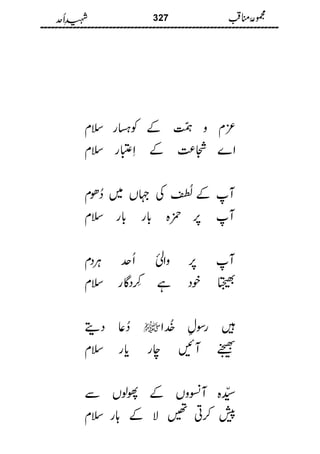 مجموعۂ مناقب 327 شہیدِ اُحد
عزم و ہمّت کے کوہسار سلام
اے شجاعت کے اِعتبار سلام
آپ کے لُطف کی جہاں میں دُھوم
آپ پر حمزہ بار بار سلام
آپ پر والیٔ اُحد ہردم
بھیجتا خود ہے کِردگار سلام
ہیں رسولِ خُداﷺ دُعا دیتے
بھیجنے آئیں چار یار سلام
سیّدہ آنسوؤں کے پھولوں سے
پیش کرتی تھیں لا کے ہار سلام